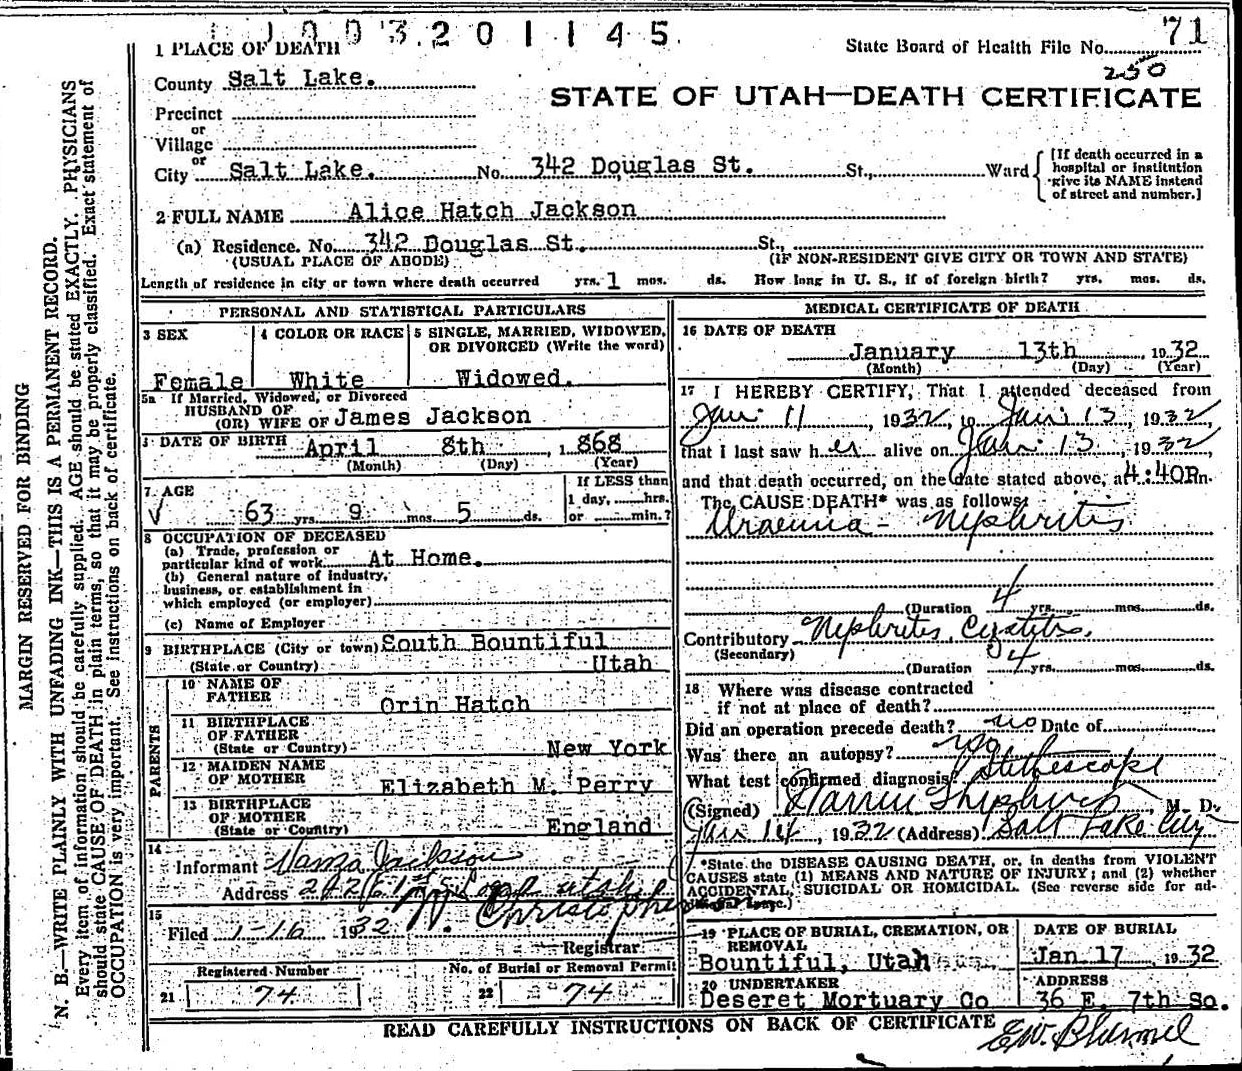 1003201145
1 PLACE OF DEATH
State Board of Health File No. 71
250
County Salt Lake.
STATE OF UTAH—DEATH CERTIFICATE
Precinct
or
Village
or
City Salt Lake. No. 342 Douglas St. St., Ward
[If death occurred in a
hospital or institution
give its NAME instead
of street and number.]
2 FULL NAME Alice Hatch Jackson
(a) Residence. No. 342 Douglas St. St.,
(USUAL PLACE OF ABODE) (IF NON-RESIDENT GIVE CITY OR TOWN AND STATE)
Length of residence in city or town where death occurred yrs. 1 mos. ds. How long in U. S., if of foreign birth? yrs. mos. ds.
PERSONAL AND STATISTICAL PARTICULARS
3 SEX
Female
4 COLOR OR RACE
White
5 SINGLE, MARRIED, WIDOWED,
OR DIVORCED (Write the word)
Widowed.
5a If Married, Widowed, or Divorced
HUSBAND OF
(OR) WIFE OF James Jackson
DATE OF BIRTH April 8th , 1868
(Month) (Day) (Year)
7 AGE
63 yrs. 9 mos. 5 ds.
If LESS than
1 day, hrs.
or min.?
8 OCCUPATION OF DECEASED
(a) Trade, profession or
particular kind of work At Home.
(b) General nature of industry,
business, or establishment in
which employed (or employer)
(c) Name of Employer
9 BIRTHPLACE (City or town) South Bountiful
(State or Country) Utah
PARENTS
10 NAME OF
FATHER Orin Hatch
11 BIRTHPLACE
OF FATHER
(State or Country) New York
12 MAIDEN NAME
OF MOTHER Elizabeth M. Perry
13 BIRTHPLACE
OF MOTHER
(State or Country) England
14
Informant Jackson
Address utah
15
Filed 1-16 1932 Christopherson
Registrar
Registered Number
21 74
No. of Burial or Removal Permit
22 74
MEDICAL CERTIFICATE OF DEATH
16 DATE OF DEATH
January 13th , 1932
(Month) (Day) (Year)
17 I HEREBY CERTIFY, That I attended deceased from
Jan 11 , 1932, to Jan 13, 1932
that I last saw her alive on Jan 13, 1932,
and that death occurred, on the date stated above, at 4:40P.m.
The CAUSE DEATH* was as follows:
Uraemia - Nephritis
(Duration 4 yrs. mos. ds.
Contributory Nephritis Cystitis.
(Secondary)
(Duration 4 yrs. mos. ds.
18 Where was disease contracted
if not at place of death?
Did an operation precede death? no Date of
Was there an autopsy? no
What test confirmed diagnosis? Stethescope
(Signed) Warren Shepherd, M. D.
Jan 14, 1932 (Address) Salt Lake City
*State the DISEASE CAUSING DEATH, or, in deaths from VIOLENT
CAUSES state (1) MEANS AND NATURE OF INJURY; and (2) whether
ACCIDENTAL, SUICIDAL OR HOMICIDAL. (See reverse side for ad-
ditional space.)
19 PLACE OF BURIAL, CREMATION, OR
REMOVAL
Bountiful, Utah
DATE OF BURIAL
Jan 17 1932
20 UNDERTAKER
Deseret Mortuary Co
ADDRESS
36 E. 7th So.
READ CAREFULLY INSTRUCTIONS ON BACK OF CERTIFICATE
MARGIN RESERVED FOR BINDING
N. B.—WRITE PLAINLY WITH UNFADING INK—THIS IS A PERMANENT RECORD.
Every item of information should be carefully supplied. AGE should be stated EXACTLY. PHYSICIANS
should state CAUSE OF DEATH in plain terms, so that it may be properly classified. Exact statement of
OCCUPATION is very important. See instructions on back of certificate.